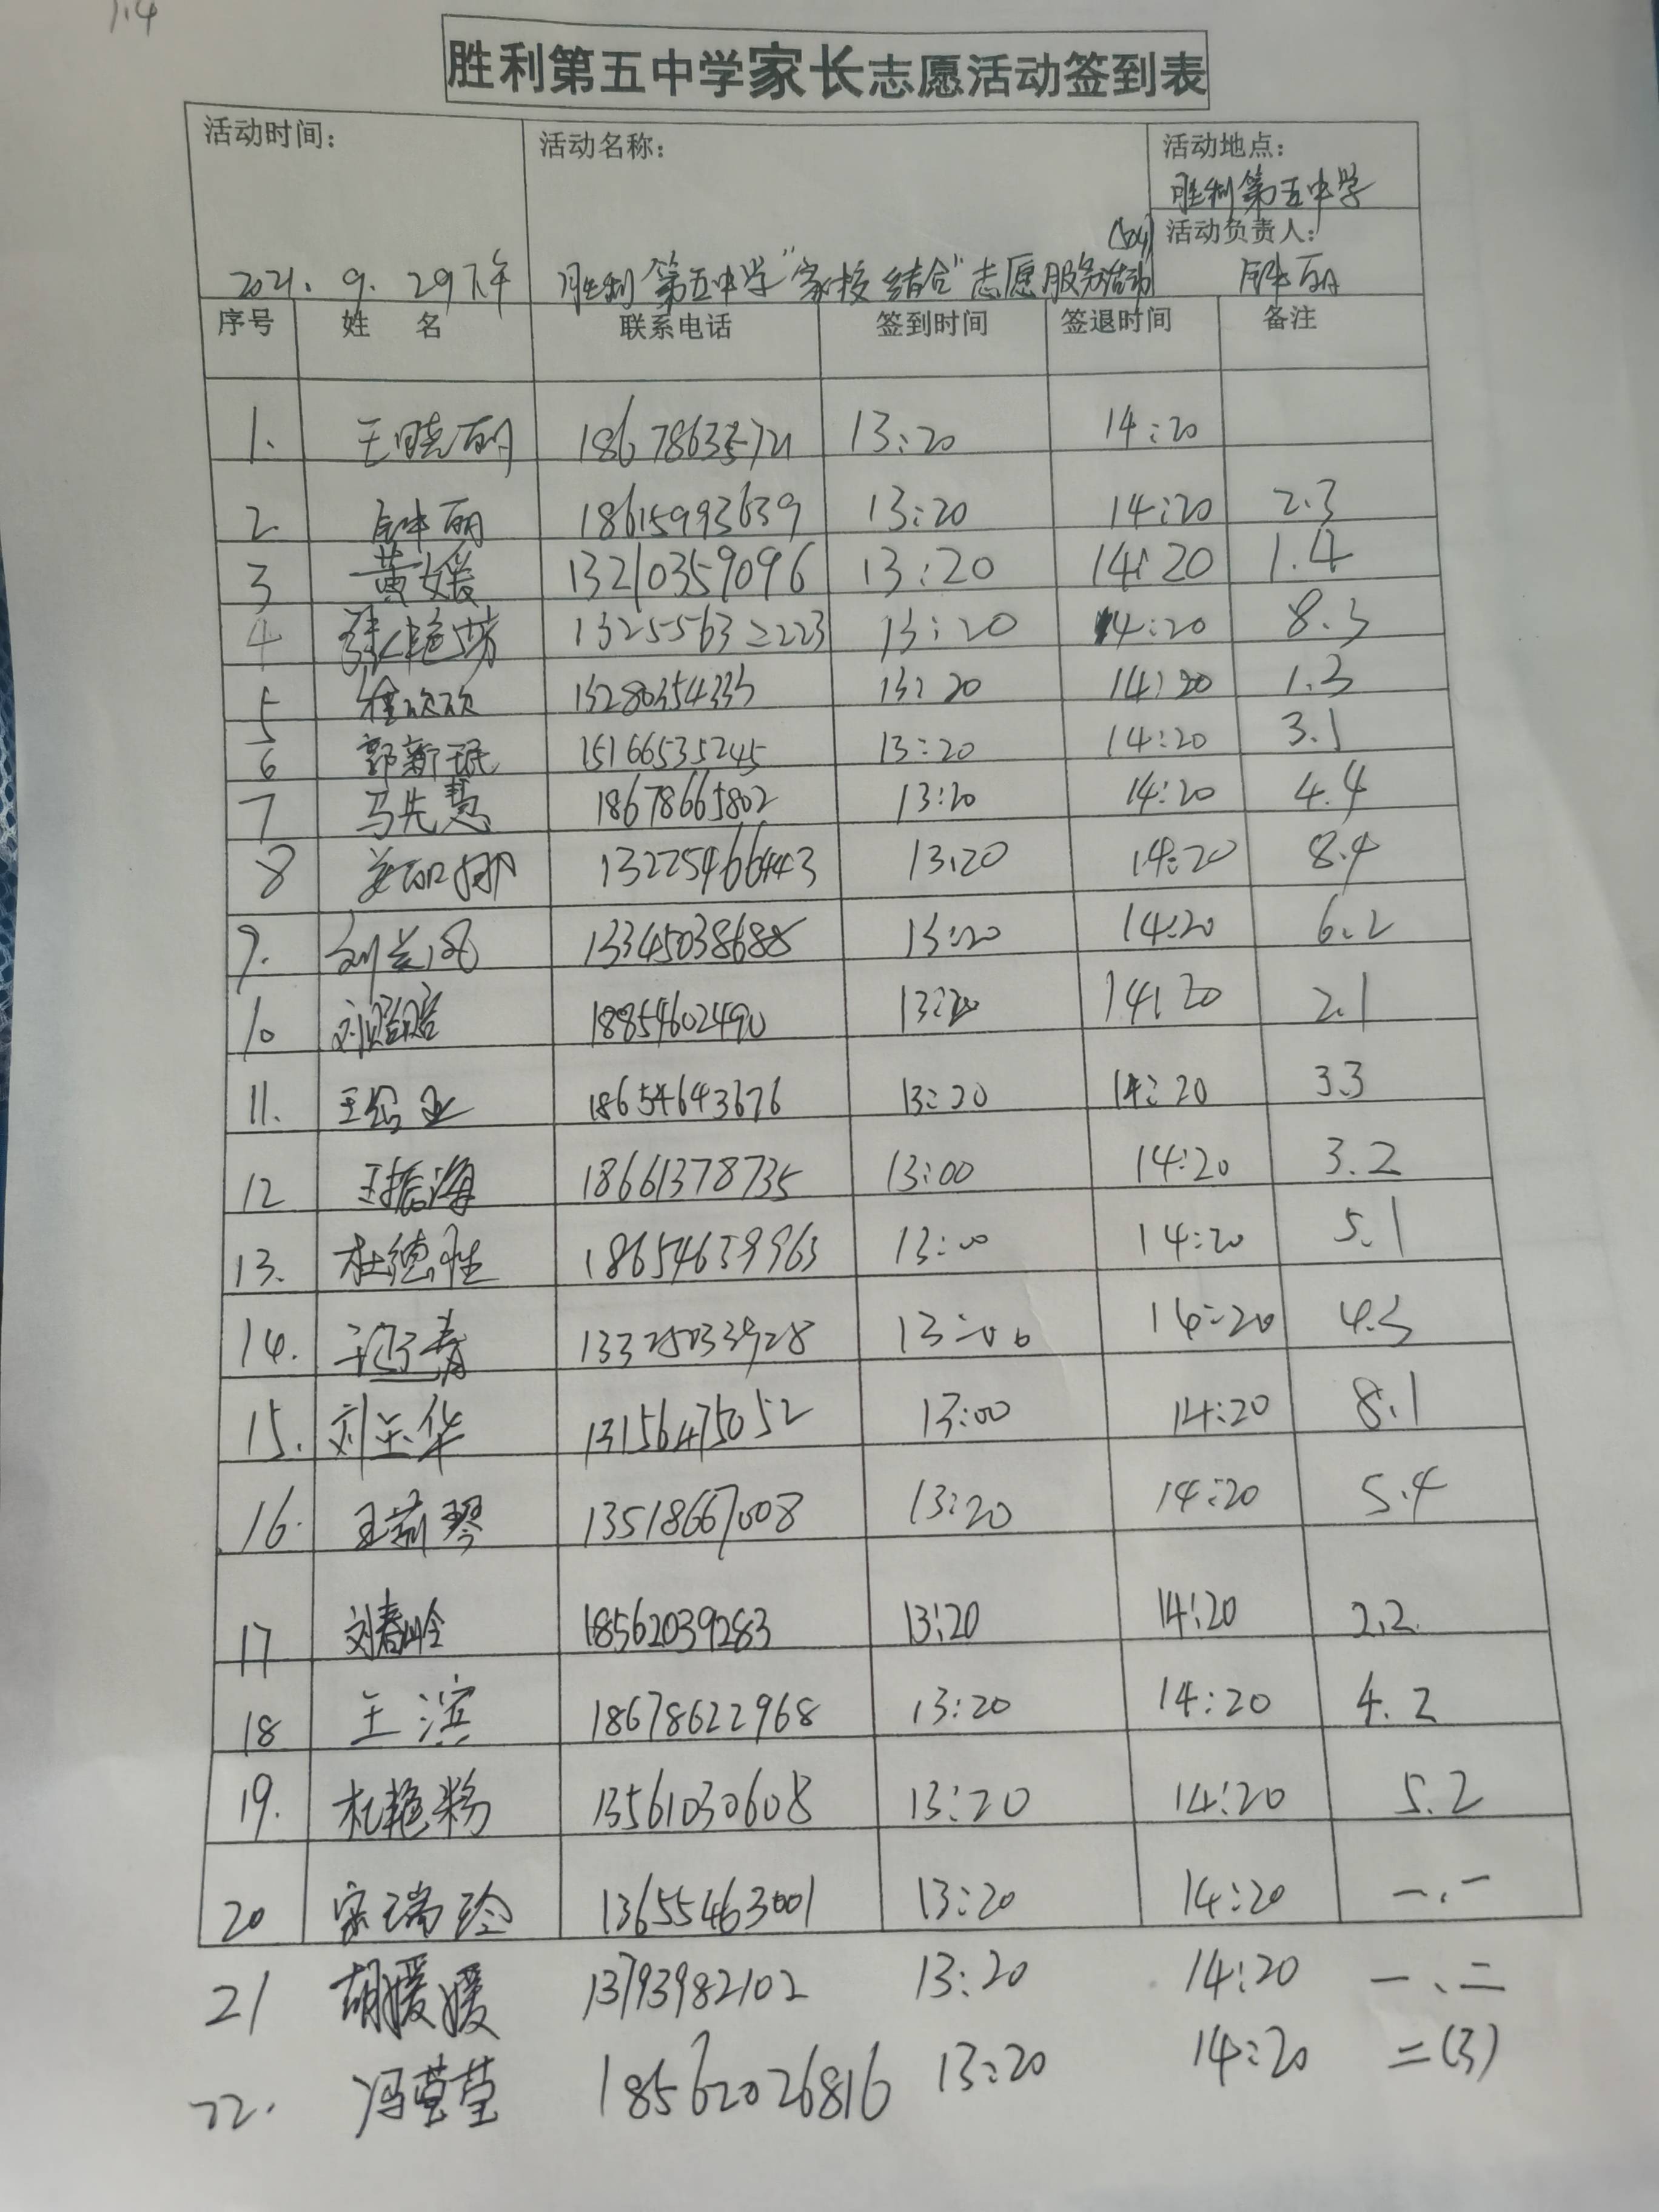 1.4
胜利第五中学家长志愿活动签到表
活动时间: 活动名称: 活动地点:
胜利第五中学
活动负责人:
2021. 9. 29下午 胜利第五中学"家校结合"志愿服务活动 钟丽
序号 姓 名 联系电话 签到时间 签退时间 备注
1. 王晓丽 13:20 14:20
2 钟丽 18615993639 13:20 14:20 2.3
3 黄媛 13210359096 13:20 14:20 1.4
4 张艳芳 13255632223 13:20 14:20 8.3
5 13280354333 13:20 14:20 1.3
6 郭新珉 15166535245 13:20 14:20 3.1
7 马先慧 18678665802 13:20 14:20 4.4
8 姜丽娜 13225466443 13:20 14:20 8.4
9. 刘兰凤 13345038688 13:20 14:20 6.2
10 刘聪聪 18854602490 13:20 14:20 2.1
11. 18654643676 13:20 14:20 3.3
12 王振海 18661378735 13:00 14:20 3.2
13. 杜德胜 18654639963 13:00 14:20 5.1
14. 13325033928 13:00 14:20 4.3
15. 刘玉华 13156475052 13:00 14:20 8.1
16. 王莉琴 13518667008 13:20 14:20 5.4
17 刘春岭 18562039283 13:20 14:20 2.2
18 王滨 18678622968 13:20 14:20 4.2
19. 杜艳粉 13561030608 13:20 14:20 5.2
20 宋瑞玲 13655463001 13:20 14:20 一.一
21 胡媛媛 13793982102 13:20 14:20 一、二
22. 冯莹莹 18562026816 13:20 14:20 二(3)